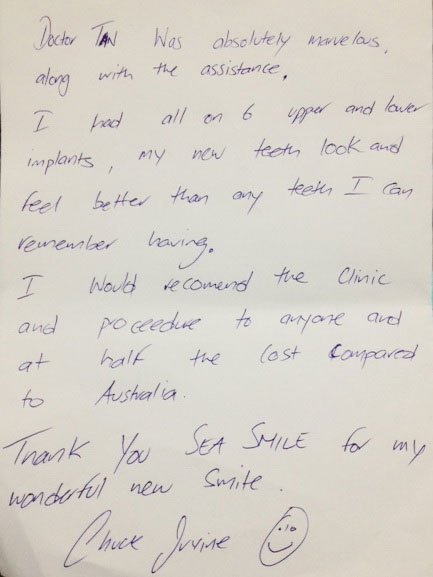 Doctor TAN Was absolutely marvelous,
along with the assistance.
I had all on 6 upper and lower
implants, my new teeth look and
feel better than any teeth I can
remember having.
I Would recomend the Clinic
and proceedure to anyone and
at half the Cost Compared
to Australia.
Thank You SEA SMILE for my
wonderful new Smile.
Chuck Irvine